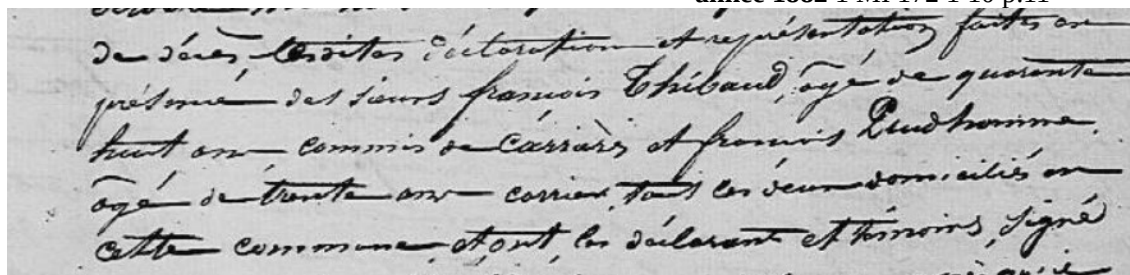 année 1882 1 MI 172 1 10 p.11
de décès, lesdites déclaration et représentation faites en
présence des sieurs françois Thibaud, âgé de quarante
huit ans commis de Carrière et françois Prudhomme,
âgé de trente ans carrier, tous les deux domiciliés en
cette commune, et ont, les déclarant et témoins, signé